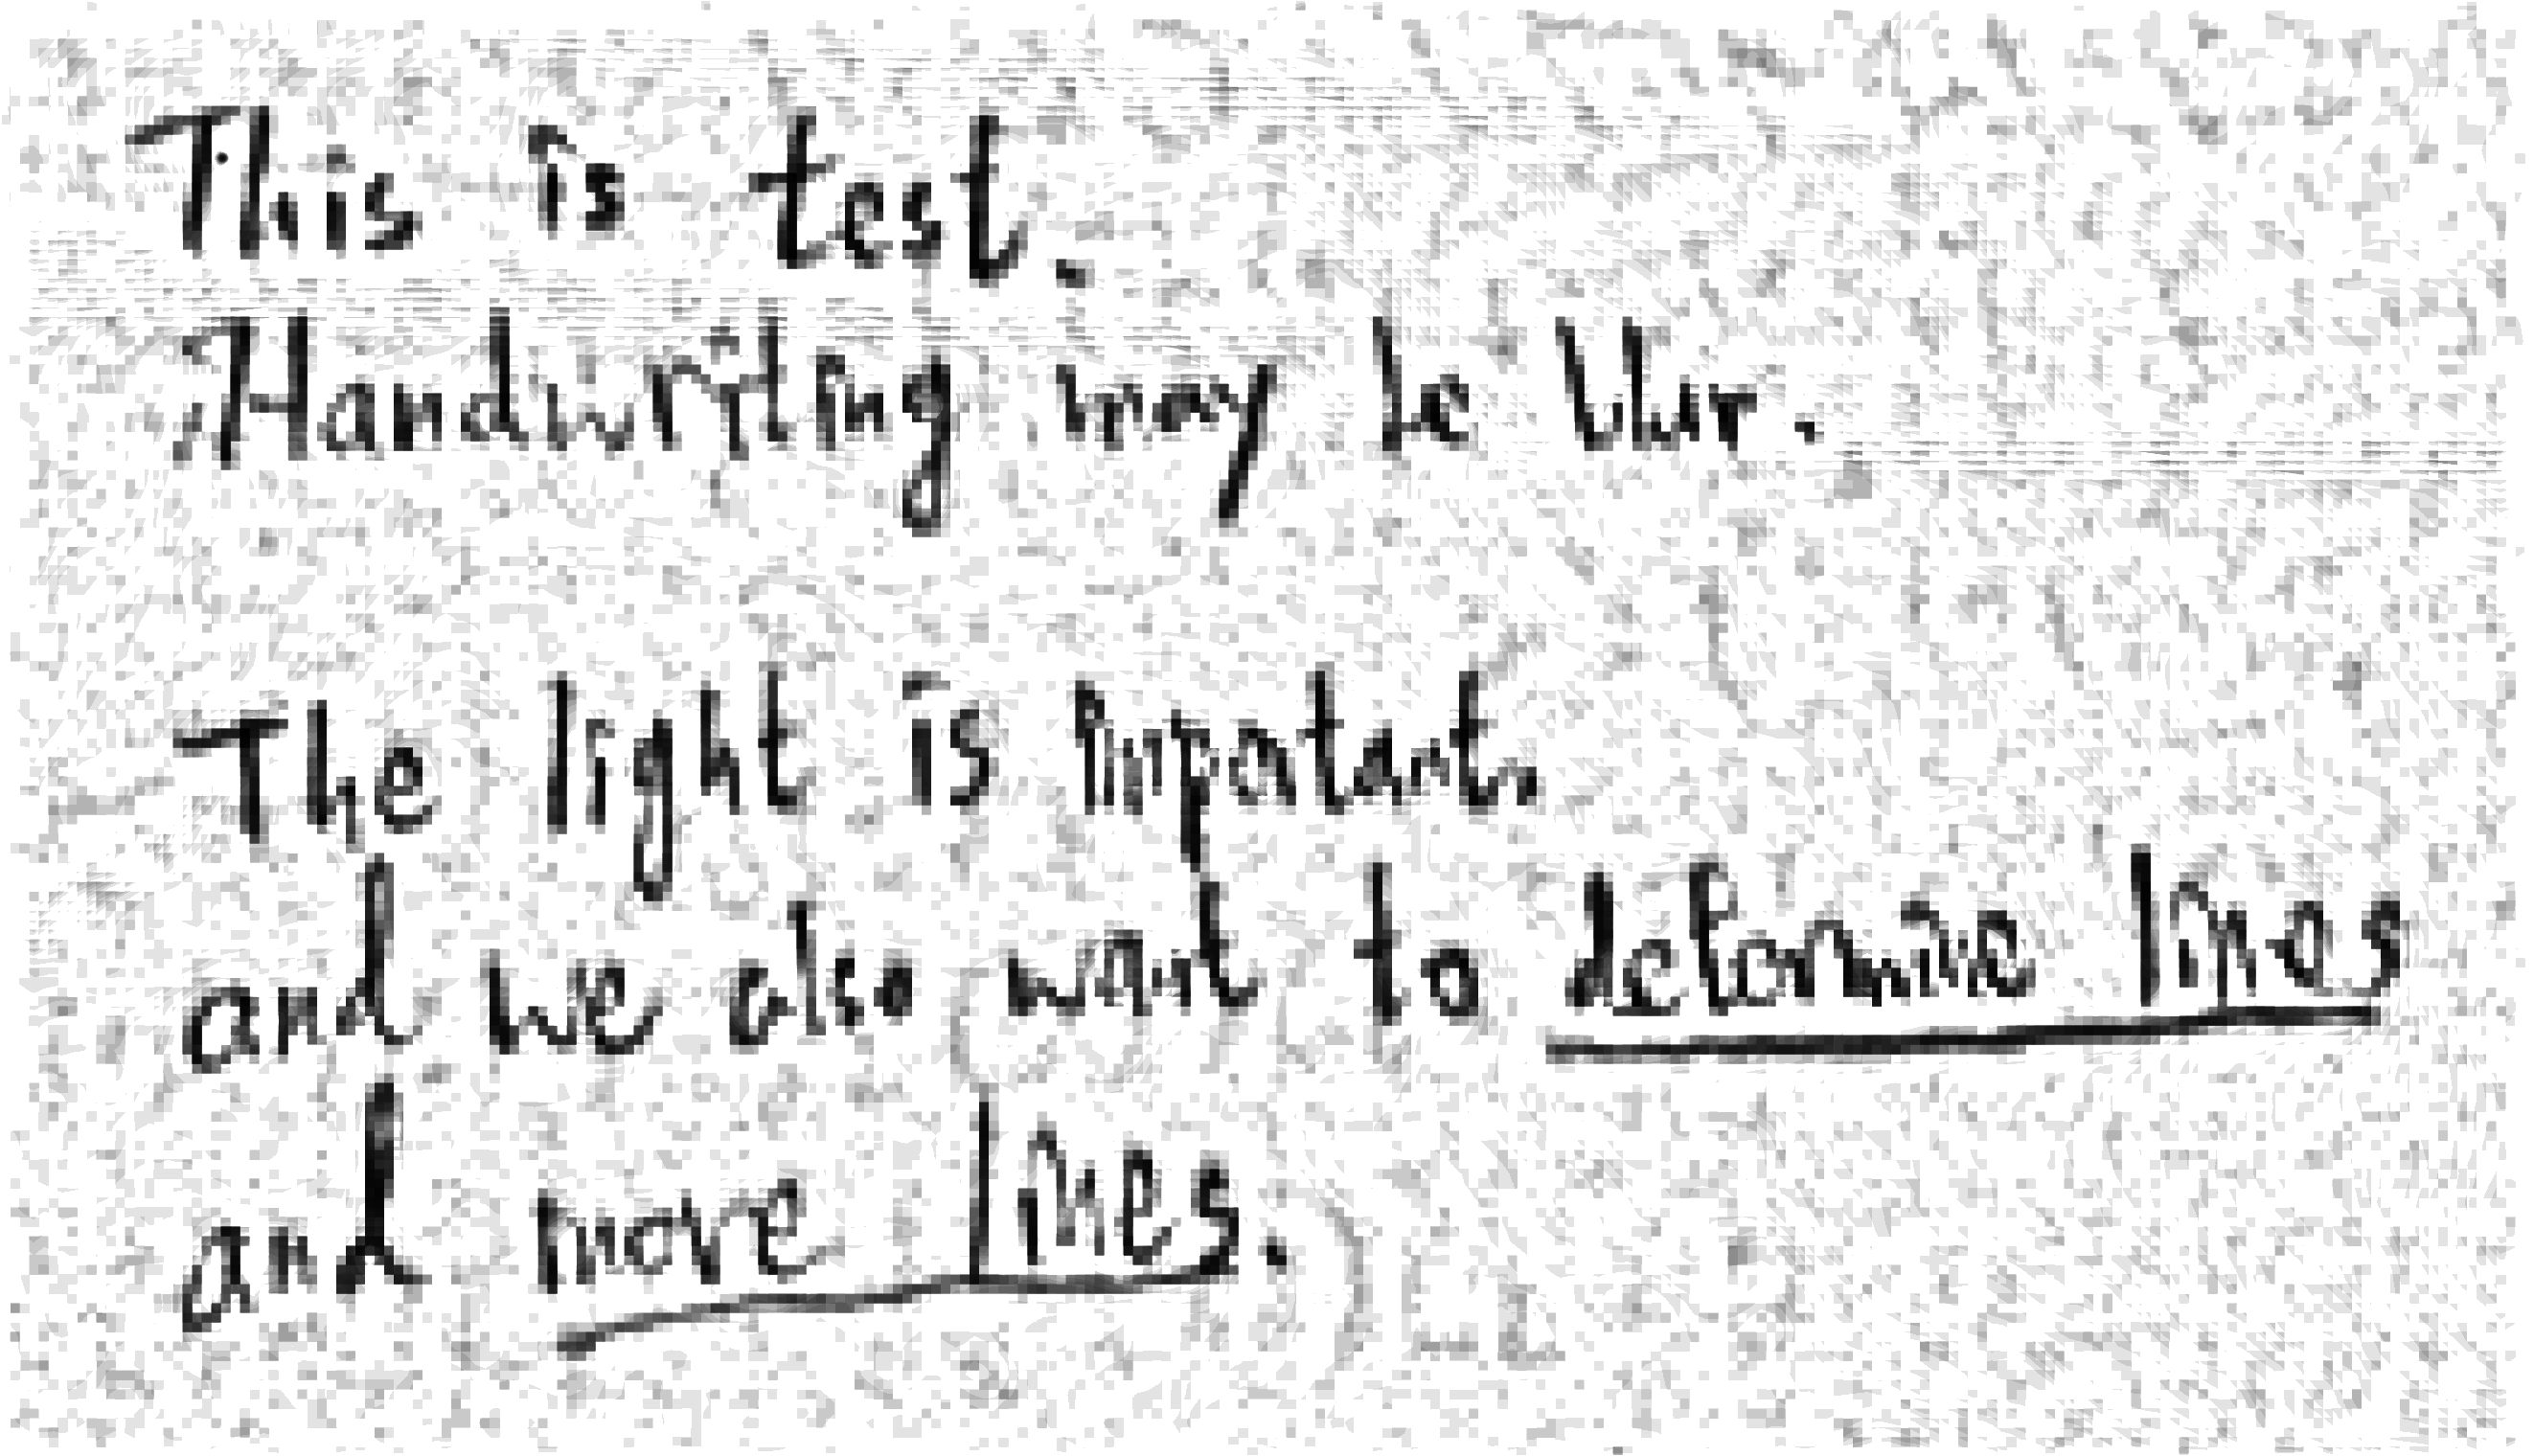 This is test.
Handwriting may be blur.
The light is important.
and we also want to determine lines
and move lines.